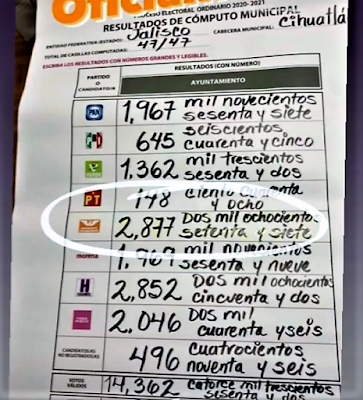 Oficial
PROCESO ELECTORAL ORDINARIO 2020- 2021
RESULTADOS DE CÓMPUTO MUNICIPAL
ENTIDAD FEDERATIVA (ESTADO): Jalisco CABECERA MUNICIPAL: Cihuatlá
TOTAL DE CASILLAS COMPUTADAS: 47/47
ESCRIBA LOS RESULTADOS CON NÚMEROS GRANDES Y LEGIBLES.
PARTIDO O CANDIDATO/A
RESULTADOS (CON NÚMERO)
AYUNTAMIENTO
PAN 1,967 mil novecientos
sesenta y siete
PRI 645 seiscientos
cuarenta y cinco
VERDE 1,362 mil trescientos
sesenta y dos
PT 148 ciento cuarenta
y ocho
2,877 Dos mil ochocientos
setenta y siete
morena 1,969 mil novecientos
sesenta y nueve
H 2,852 Dos mil ochocientos
cincuenta y dos
2,046 Dos mil
cuarenta y seis
CANDIDATOS/AS NO REGISTRADOS/AS 496 cuatrocientos
noventa y seis
VOTOS VÁLIDOS 14,362 catorce mil trescientos
sesenta y dos